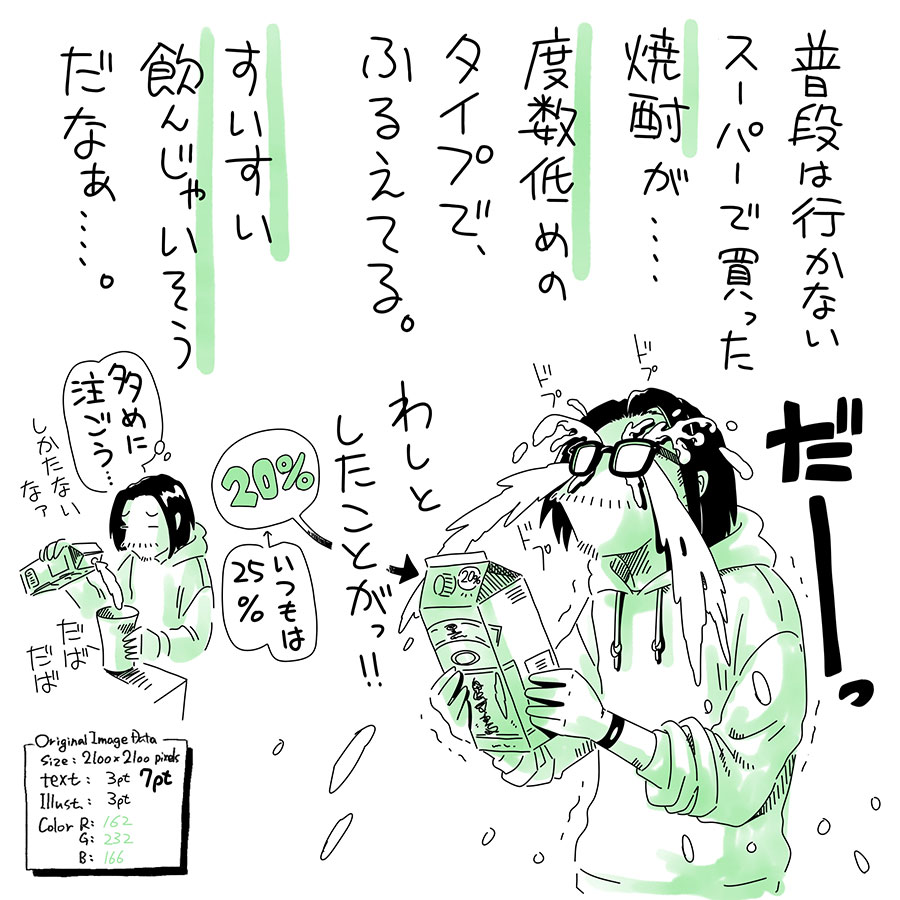 普段は行かない
スーパーで買った
焼酎が……
度数低めの
タイプで、
ふるえてる。
すいすい
飲んじゃいそう
だなぁ……。
だーーっ
ドプ
ドプ
ドプ
わしと
したことがっ!!
20%
いつもは
25%
20%
多めに
注ごう…
しかたない
なァ
だば
だば
Original Image Data
Size : 2100×2100 pixels
text : 3pt 7pt
Illust. : 3pt
Color R: 162
G: 232
B: 166